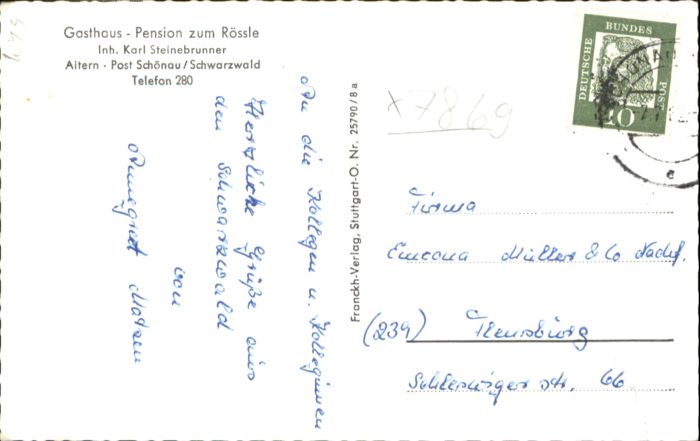 Gasthaus - Pension zum Rössle
Inh. Karl Steinebrunner
Aitern - Post Schönau/Schwarzwald
Telefon 280
An die Kollegen u. Kolleginnen
Herzliche Grüße aus
den Schwarzwald
von
Annegret Matzen
Franckh-Verlag, Stuttgart-O. Nr. 25790/8 a
x7869
DEUTSCHE BUNDESPOST
10
Firma
Emcona Müller & Co Nachf.
(239) Flensburg
Schleswiger str. 66